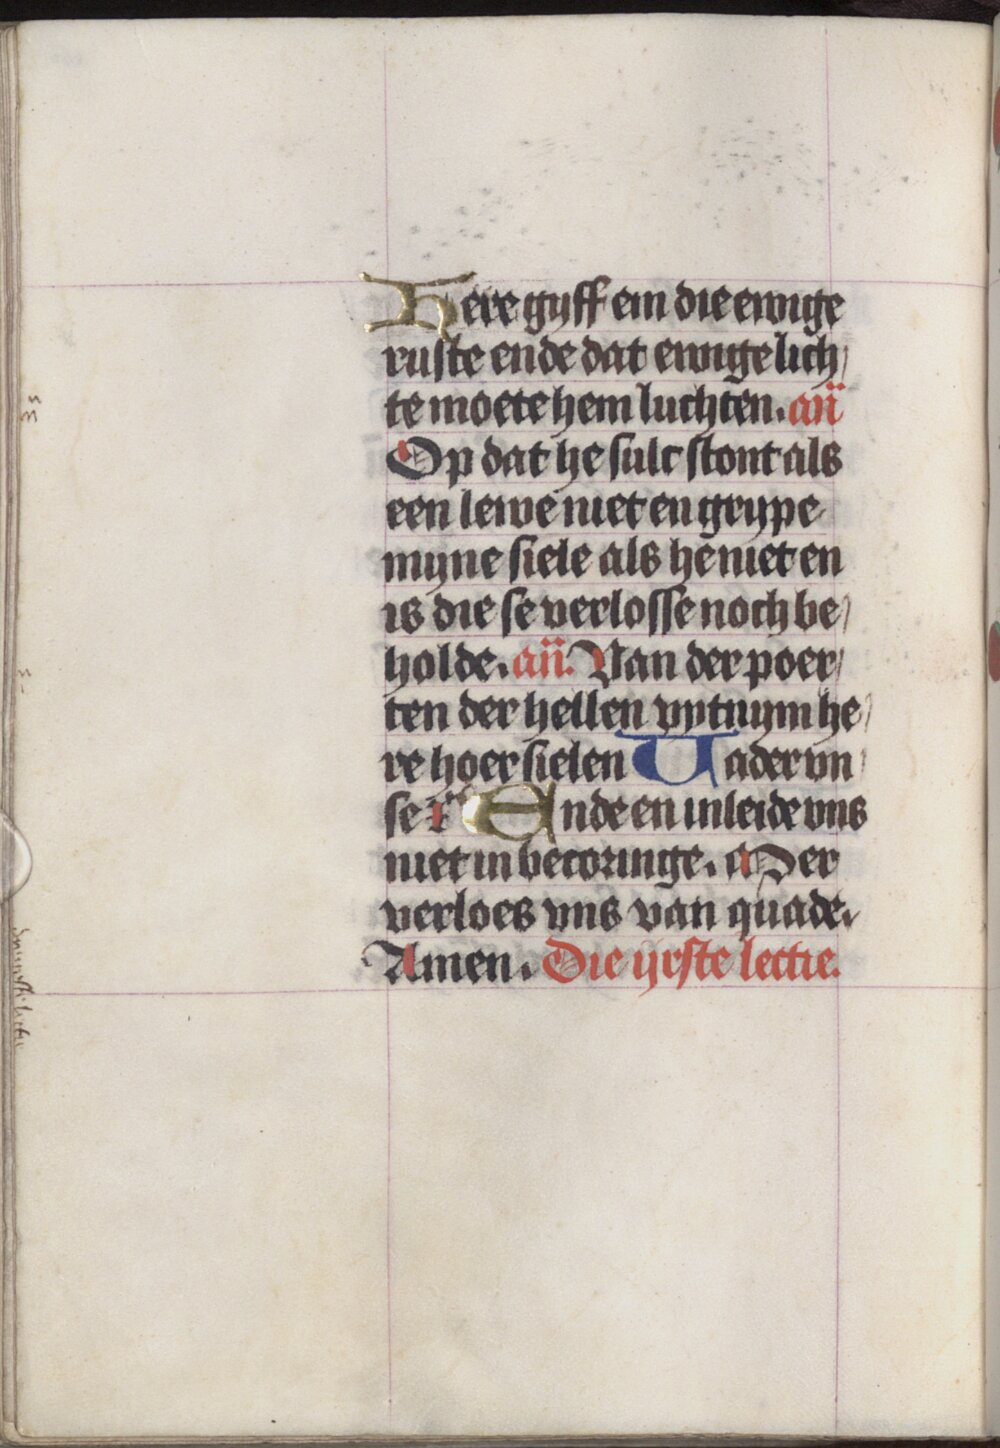 Here gyff em die ewige
ruste ende dat ewige lich
te moete hem luchten. an̄
Op dat he sulc stont als
een lewe niet en grype
myne siele als he niet en
is die se verlosse noch be
holde. an̄. Van der poer
ten der hellen vytnym he
re hoer sielen Vader vn
se Ende en inleide vns
niet in becoringe. Der
verloes vns van quade.
Amen. Die yrste lectie.